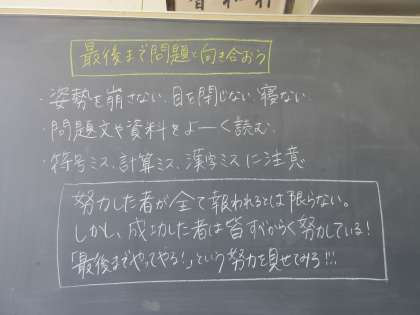 最後まで問題と向き合おう
・姿勢を崩さない、目を閉じない、寝ない
・問題文や資料をよーく読む
・符号ミス、計算ミス、漢字ミスに注意
努力した者が全て報われるとは限らない。
しかし、成功した者は皆すべからく努力している!
「最後までやってやる!」という努力を見せてみろ!!!